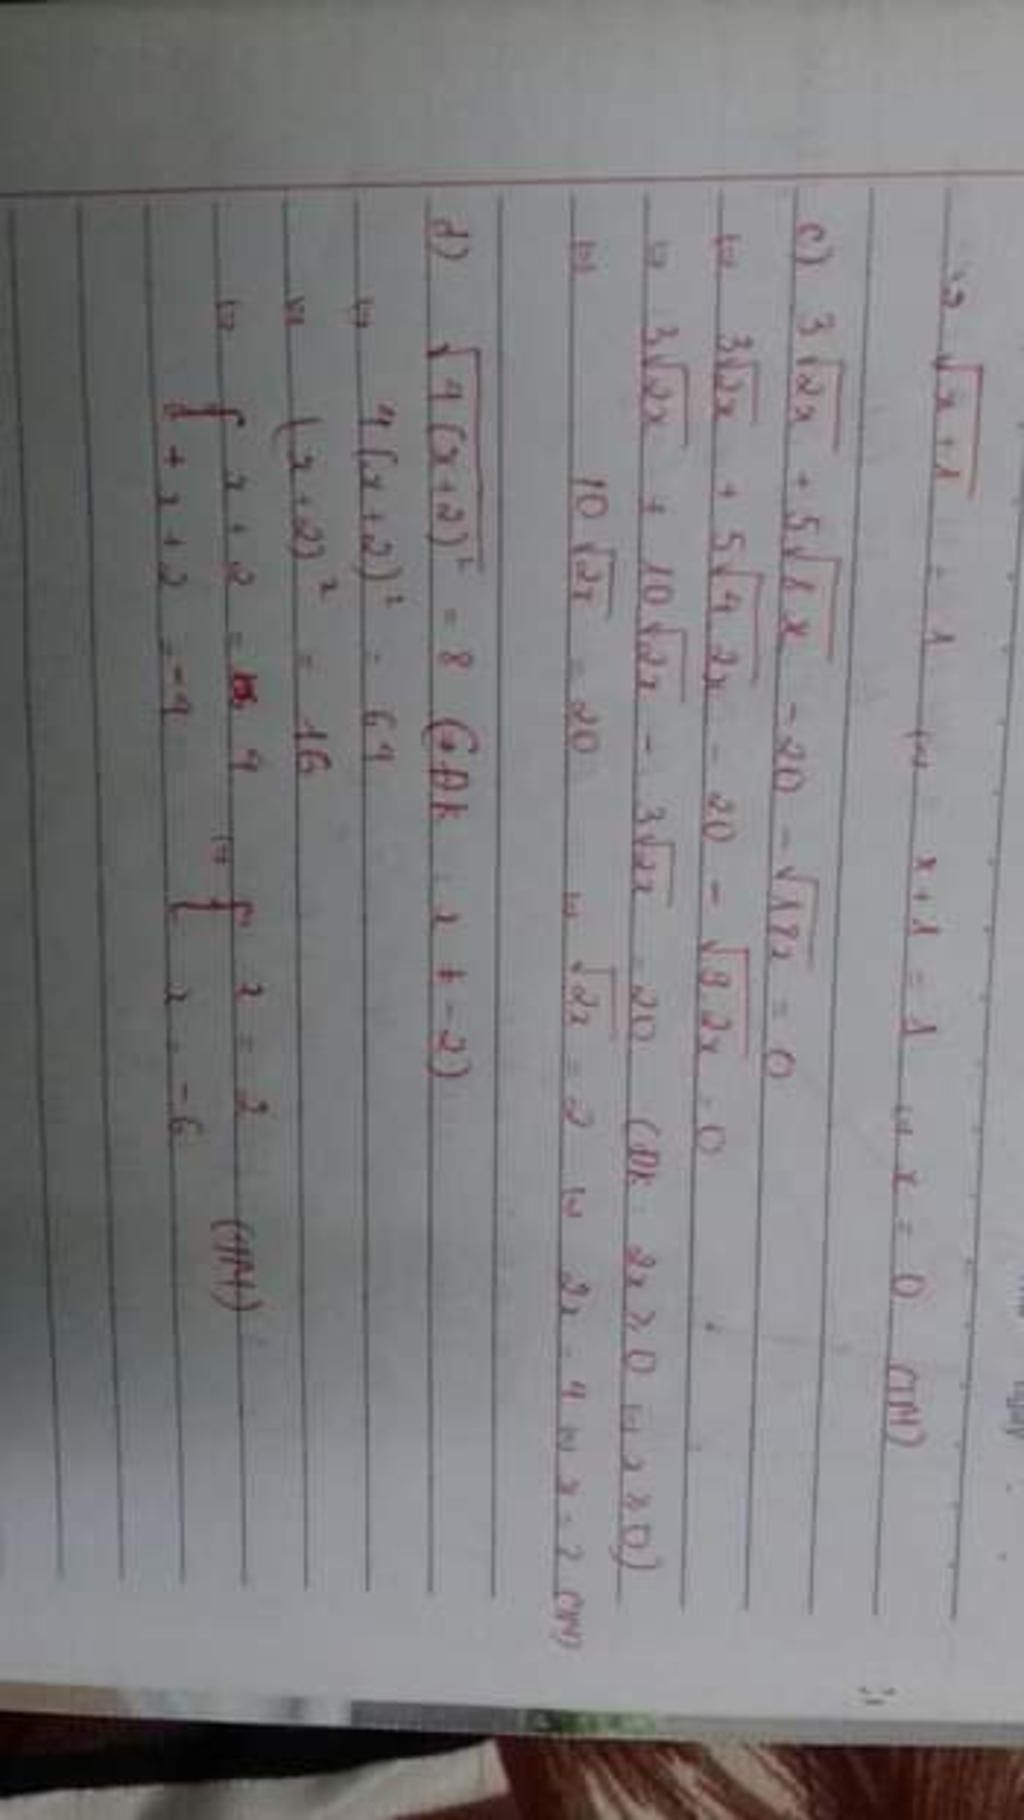 ⇔ √(x+1) = 1 ⇔ x+1 = 1 ⇔ x = 0 (TM)
c) 3√2x + 5√8x - 20 - √18x = 0
⇔ 3√2x + 5√4.2x - 20 - √9.2x = 0
⇔ 3√2x + 10√2x - 3√2x = 20 (ĐK: 2x ≥ 0 ⇔ x ≥ 0)
⇔ 10√2x = 20 ⇔ √2x = 2 ⇔ 2x = 4 ⇔ x = 2 (TM)
d) √4(x+2)² = 8 (ĐK x ≠ -2)
⇔ 4(x+2)² = 64
⇔ (x+2)² = 16
⇔ [ x+2 = 4 ⇔ [ x = 2 (TM)
[ x+2 = -4 [ x = -6